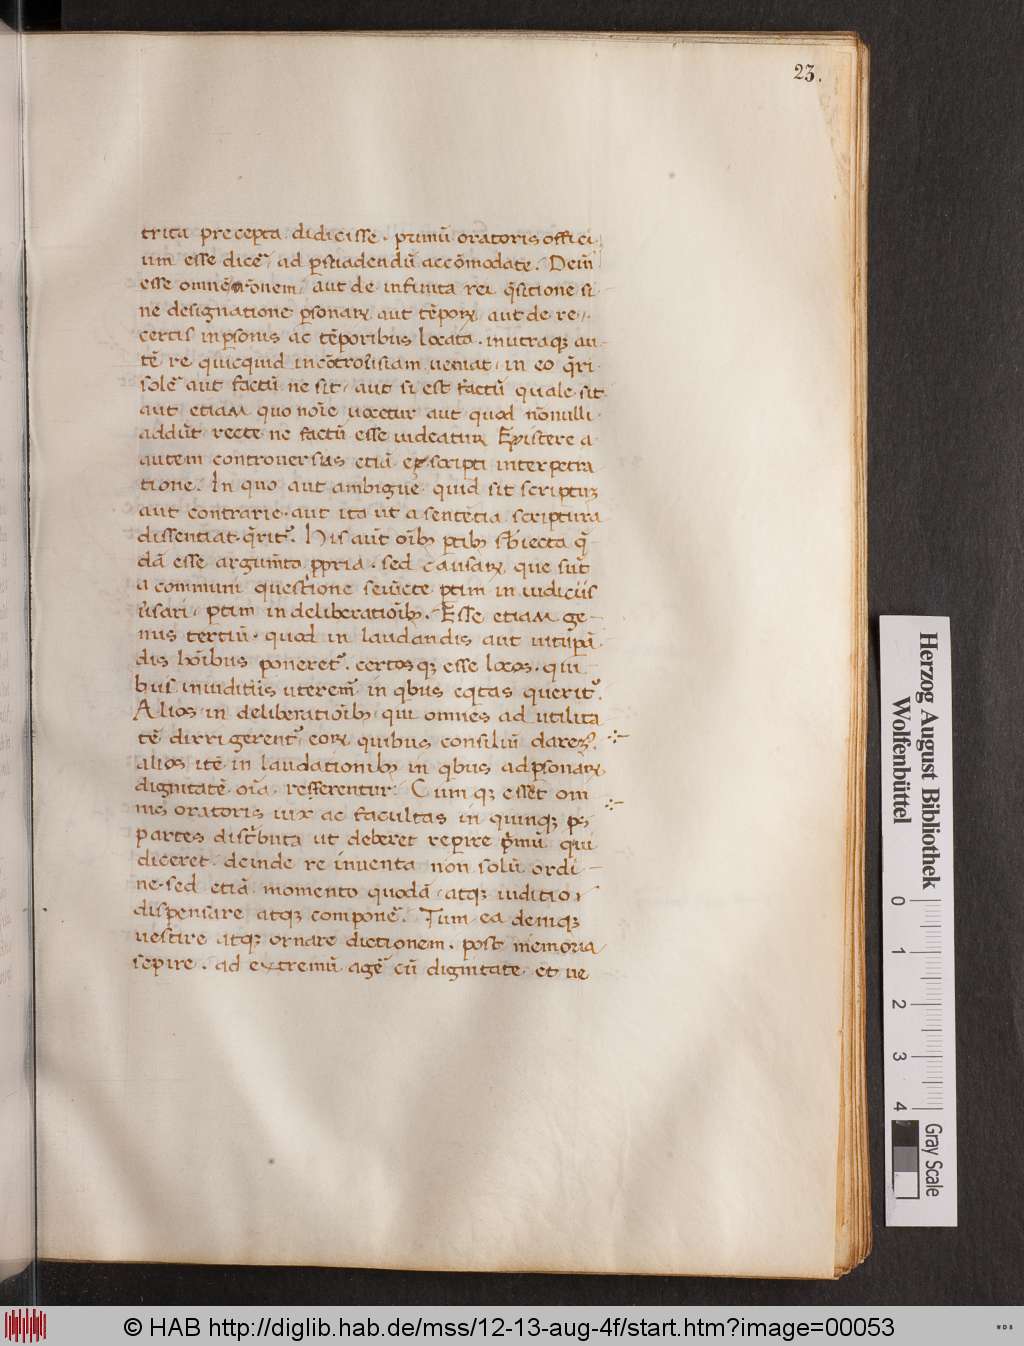 23.
trita precepta didicisse. primũ oratoris offici
um esse dicẽ, ad psuadendũ accõmodate. Deĩn
esse omnẽ or̃onem, aut de infinita rei q̃sitione si
ne designatione psonaꝝ aut tẽpoꝝ aut de re
certis in psonis ac tẽporibus locata. in utraqꝫ au
tẽ re quicquid in cõtrouersiam ueniat, in eo q̃ri
solẽ aut factũ ne sit, aut si est factũ quale sit
aut etiam quo noĩe uocetur aut quod nõnulli
addũt recte ne factũ esse uideatur Existere a
autem controuersias etiã ex scripti interpetra
tione. In quo aut ambiguẽ quid sit scriptuꝫ
aut contrarie. aut ita ut a sentẽtia scriptura
dissentiat q̃rit᷒. His aũt oĩbꝫ ptibꝫ sbiecta q̃
dã esse argum̃ta ppria. sed causaꝝ que sũt
a communi questione seiũcte ptim in iudiciis
ũsari, ptim in deliberatioĩbꝫ. Esse etiam ge
nus tertiũ. quod in laudandis aut uitupã
dis hoĩbus poneret᷒. certosqꝫ esse locos. qui
bus in iuditiis uterem᷒ in qbus eqtas querit᷒.
Alios in deliberatioĩbꝫ qui omnes ad utilita
tẽ dirrigerent᷒ eoꝝ quibus consiliũ darem᷒.
alios itẽ in laudationibꝫ in qbus ad psonaꝝ
dignitatẽ oĩa refferentur. Cumqꝫ esset om
nis oratoris uix ac facultas in quinqꝫ ps
partes distĩbuta ut deberet repire p̃mũ qui
diceret. deinde re inuenta non solũ ordi
ne. sed etiã momento quodã atqꝫ iuditio
dispensare atqꝫ componẽ. Tum ea deniqꝫ
uestire atqꝫ ornare dictionem. post memoria
sepire. ad extremũ agẽ cũ dignitate et ue
Herzog August Bibliothek
Wolfenbüttel
0 1 2 3 4
Gray Scale
© HAB http://diglib.hab.de/mss/12-13-aug-4f/start.htm?image=00053
WDB